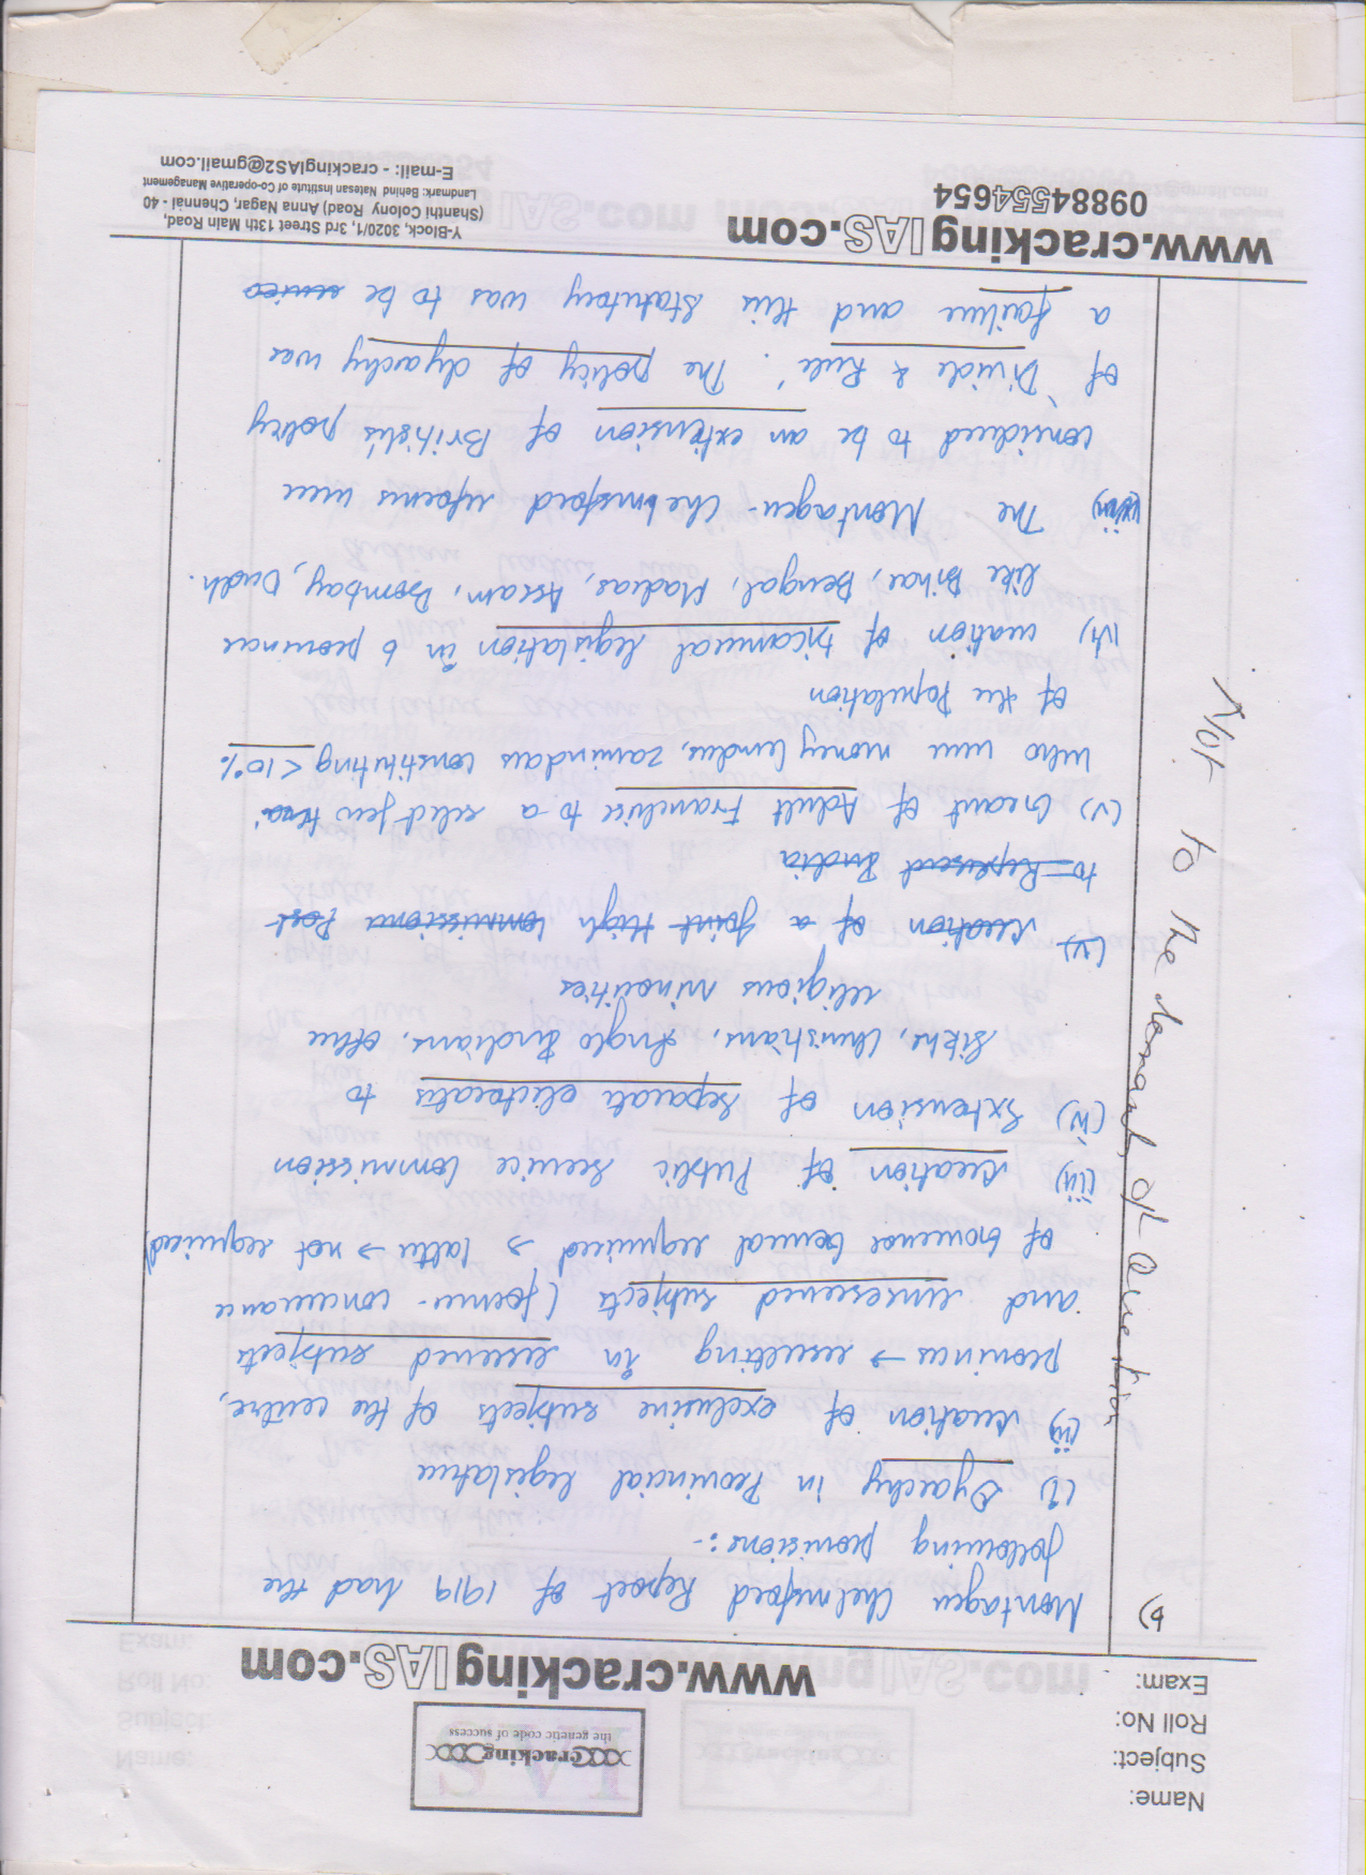 Name:
Subject:
Roll No:
Exam:
crackingIAS
the genetic code of success
www.crackingIAS.com
b) Montagu Chelmsford Report of 1919 had the
following provisions:-
(i) Dyarchy in Provincial legislature
(ii) Creation of exclusive subjects of the centre,
provinces → resulting in reserved subjects
and unreserved subjects (former - concurrance
of Governor General required → latter → not required)
(iii) Creation of Public Service Commission
(iv) Extension of separate electorates to
Sikhs, Christians, Anglo Indians, other
religious minorities
(v) Creation of a Joint High Commissioner Post
to Represent India
(v) Grant of Adult Franchise to a select few
who were money lenders, zamindars constituting <10%
of the Population
(vi) creation of bicameral legislation in 6 provinces
like Bihar, Bengal, Madras, Assam, Bombay, Oudh.
The Montagu-Chelmsford reforms were
considered to be an extension of British's policy
of 'Divide & Rule'. The policy of dyarchy was
a failure and this statutory was to be
Not to the demand of Question
www.crackingIAS.com
09884554654
Y-Block, 3020/1, 3rd Street 13th Main Road,
(Shanthi Colony Road) Anna Nagar, Chennai - 40
Landmark: Behind Natesan Institute of Co-operative Management
E-mail: - crackingIAS2@gmail.com